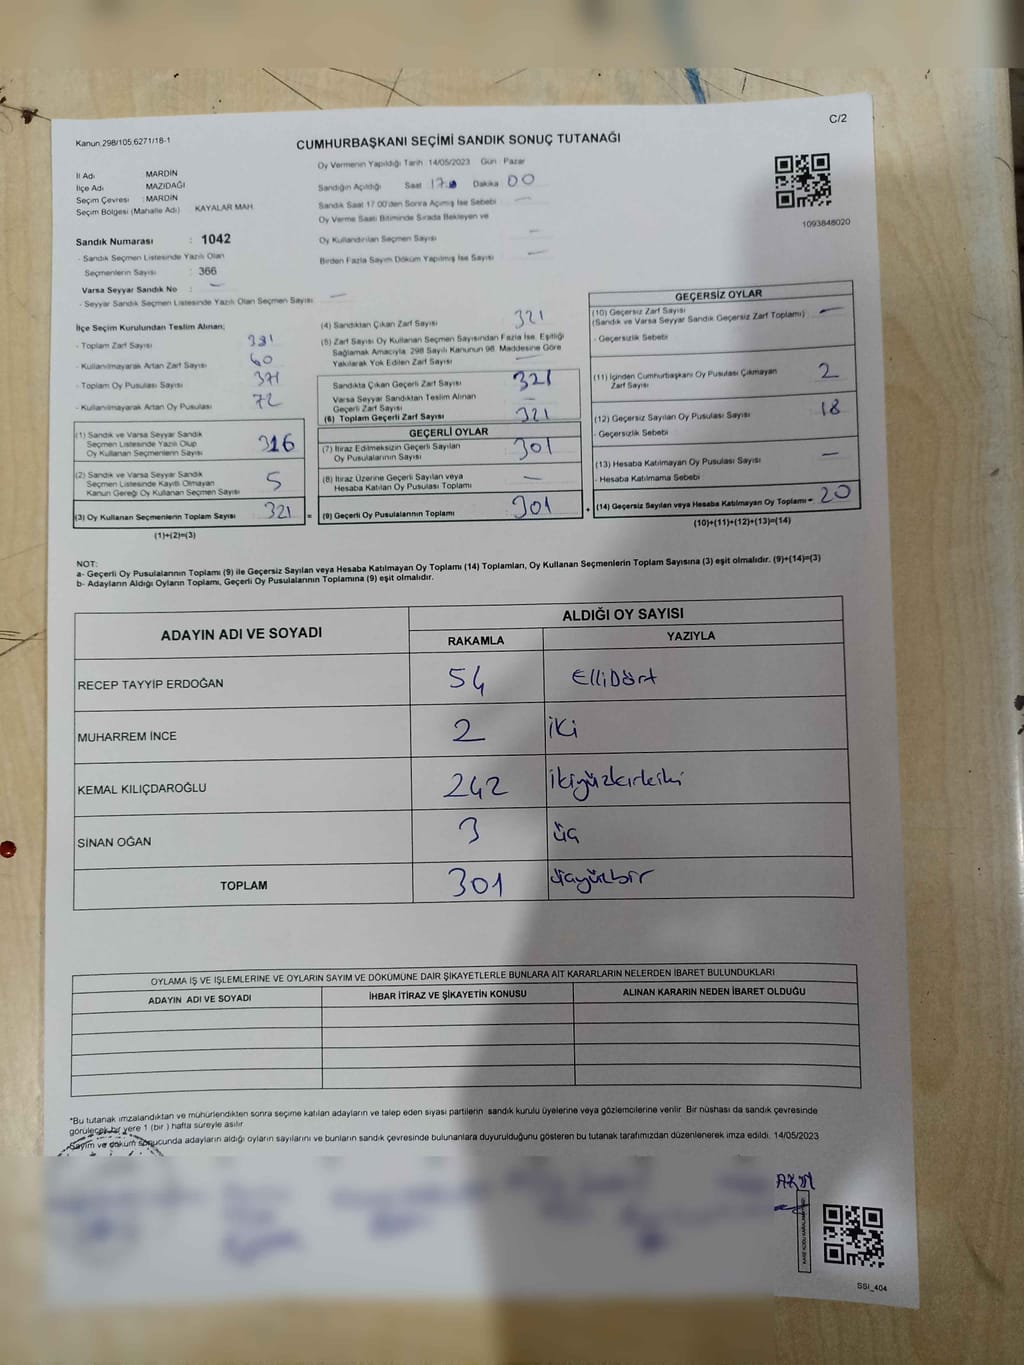 C/2
Kanun.298/105.6271/18-1
CUMHURBAŞKANI SEÇİMİ SANDIK SONUÇ TUTANAĞI
Oy Vermenin Yapıldığı Tarih :14/05/2023 Gün : Pazar
İl Adı : MARDİN
İlçe Adı : MAZIDAĞI
Seçim Çevresi : MARDİN
Seçim Bölgesi (Mahalle Adı) : KAYALAR MAH.
Sandığın Açıldığı Saat 17 Dakika 00
Sandık Saat 17:00'den Sonra Açımış İse Sebebi —
Oy Verme Saati Bitiminde Sırada Bekleyen ve
Oy Kullandırılan Seçmen Sayısı —
Birden Fazla Sayım Döküm Yapılmış İse Sayısı —
1093848020
Sandık Numarası : 1042
- Sandık Seçmen Listesinde Yazılı Olan
Seçmenlerin Sayısı : 366
Varsa Seyyar Sandık No : —
- Seyyar Sandık Seçmen Listesinde Yazılı Olan Seçmen Sayısı —
İlçe Seçim Kurulundan Teslim Alınan;
- Toplam Zarf Sayısı 381
- Kullanılmayarak Artan Zarf Sayısı 60
- Toplam Oy Pusulası Sayısı 371
- Kullanılmayarak Artan Oy Pusulası 72
(1) Sandık ve Varsa Seyyar Sandık
Seçmen Listesinde Yazılı Olup
Oy Kullanan Seçmenlerin Sayısı 316
(2) Sandık ve Varsa Seyyar Sandık
Seçmen Listesinde Kayıtlı Olmayan
Kanun Gereği Oy Kullanan Seçmen Sayısı 5
(3) Oy Kullanan Seçmenlerin Toplam Sayısı 321 =
(1)+(2)=(3)
(4) Sandıktan Çıkan Zarf Sayısı 321
(5) Zarf Sayısı Oy Kullanan Seçmen Sayısından Fazla İse, Eşitliği
Sağlamak Amacıyla, 298 Sayılı Kanunun 98. Maddesine Göre
Yakılarak Yok Edilen Zarf Sayısı —
Sandıkta Çıkan Geçerli Zarf Sayısı 321
Varsa Seyyar Sandıktan Teslim Alınan
Geçerli Zarf Sayısı —
(6) Toplam Geçerli Zarf Sayısı 321
GEÇERLİ OYLAR
(7) İtiraz Edilmeksizin Geçerli Sayılan
Oy Pusulalarının Sayısı 301
(8) İtiraz Üzerine Geçerli Sayılan veya
Hesaba Katılan Oy Pusulası Toplamı —
(9) Geçerli Oy Pusulalarının Toplamı 301 +
GEÇERSİZ OYLAR
(10) Geçersiz Zarf Sayısı —
(Sandık ve Varsa Seyyar Sandık Geçersiz Zarf Toplamı)
- Geçersizlik Sebebi
(11) İçinden Cumhurbaşkanı Oy Pusulası Çıkmayan 2
Zarf Sayısı
(12) Geçersiz Sayılan Oy Pusulası Sayısı 18
- Geçersizlik Sebebi
(13) Hesaba Katılmayan Oy Pusulası Sayısı —
- Hesaba Katılmama Sebebi
(14) Geçersiz Sayılan veya Hesaba Katılmayan Oy Toplamı= 20
(10)+(11)+(12)+(13)=(14)
NOT:
a- Geçerli Oy Pusulalarının Toplamı (9) ile Geçersiz Sayılan veya Hesaba Katılmayan Oy Toplamı (14) Toplamları, Oy Kullanan Seçmenlerin Toplam Sayısına (3) eşit olmalıdır. (9)+(14)=(3)
b- Adayların Aldığı Oyların Toplamı, Geçerli Oy Pusulalarının Toplamına (9) eşit olmalıdır.
ADAYIN ADI VE SOYADI ALDIĞI OY SAYISI
RAKAMLA YAZIYLA
RECEP TAYYİP ERDOĞAN 54 ElliDört
MUHARREM İNCE 2 İki
KEMAL KILIÇDAROĞLU 242 İkiyüzkırkiki
SİNAN OĞAN 3 üç
TOPLAM 301 üçyüzbir
OYLAMA İŞ VE İŞLEMLERİNE VE OYLARIN SAYIM VE DÖKÜMÜNE DAİR ŞİKAYETLERLE BUNLARA AİT KARARLARIN NELERDEN İBARET BULUNDUKLARI
ADAYIN ADI VE SOYADI İHBAR İTİRAZ VE ŞİKAYETİN KONUSU ALINAN KARARIN NEDEN İBARET OLDUĞU
*Bu tutanak imzalandıktan ve mühürlendikten sonra seçime katılan adayların ve talep eden siyasi partilerin sandık kurulu üyelerine veya gözlemcilerine verilir. Bir nüshası da sandık çevresinde
görülecek bir yere 1 (bir ) hafta süreyle asılır.
Sayım ve döküm sonucunda adayların aldığı oyların sayılarını ve bunların sandık çevresinde bulunanlara duyurulduğunu gösteren bu tutanak tarafımızdan düzenlenerek imza edildi. 14/05/2023
SSI_404